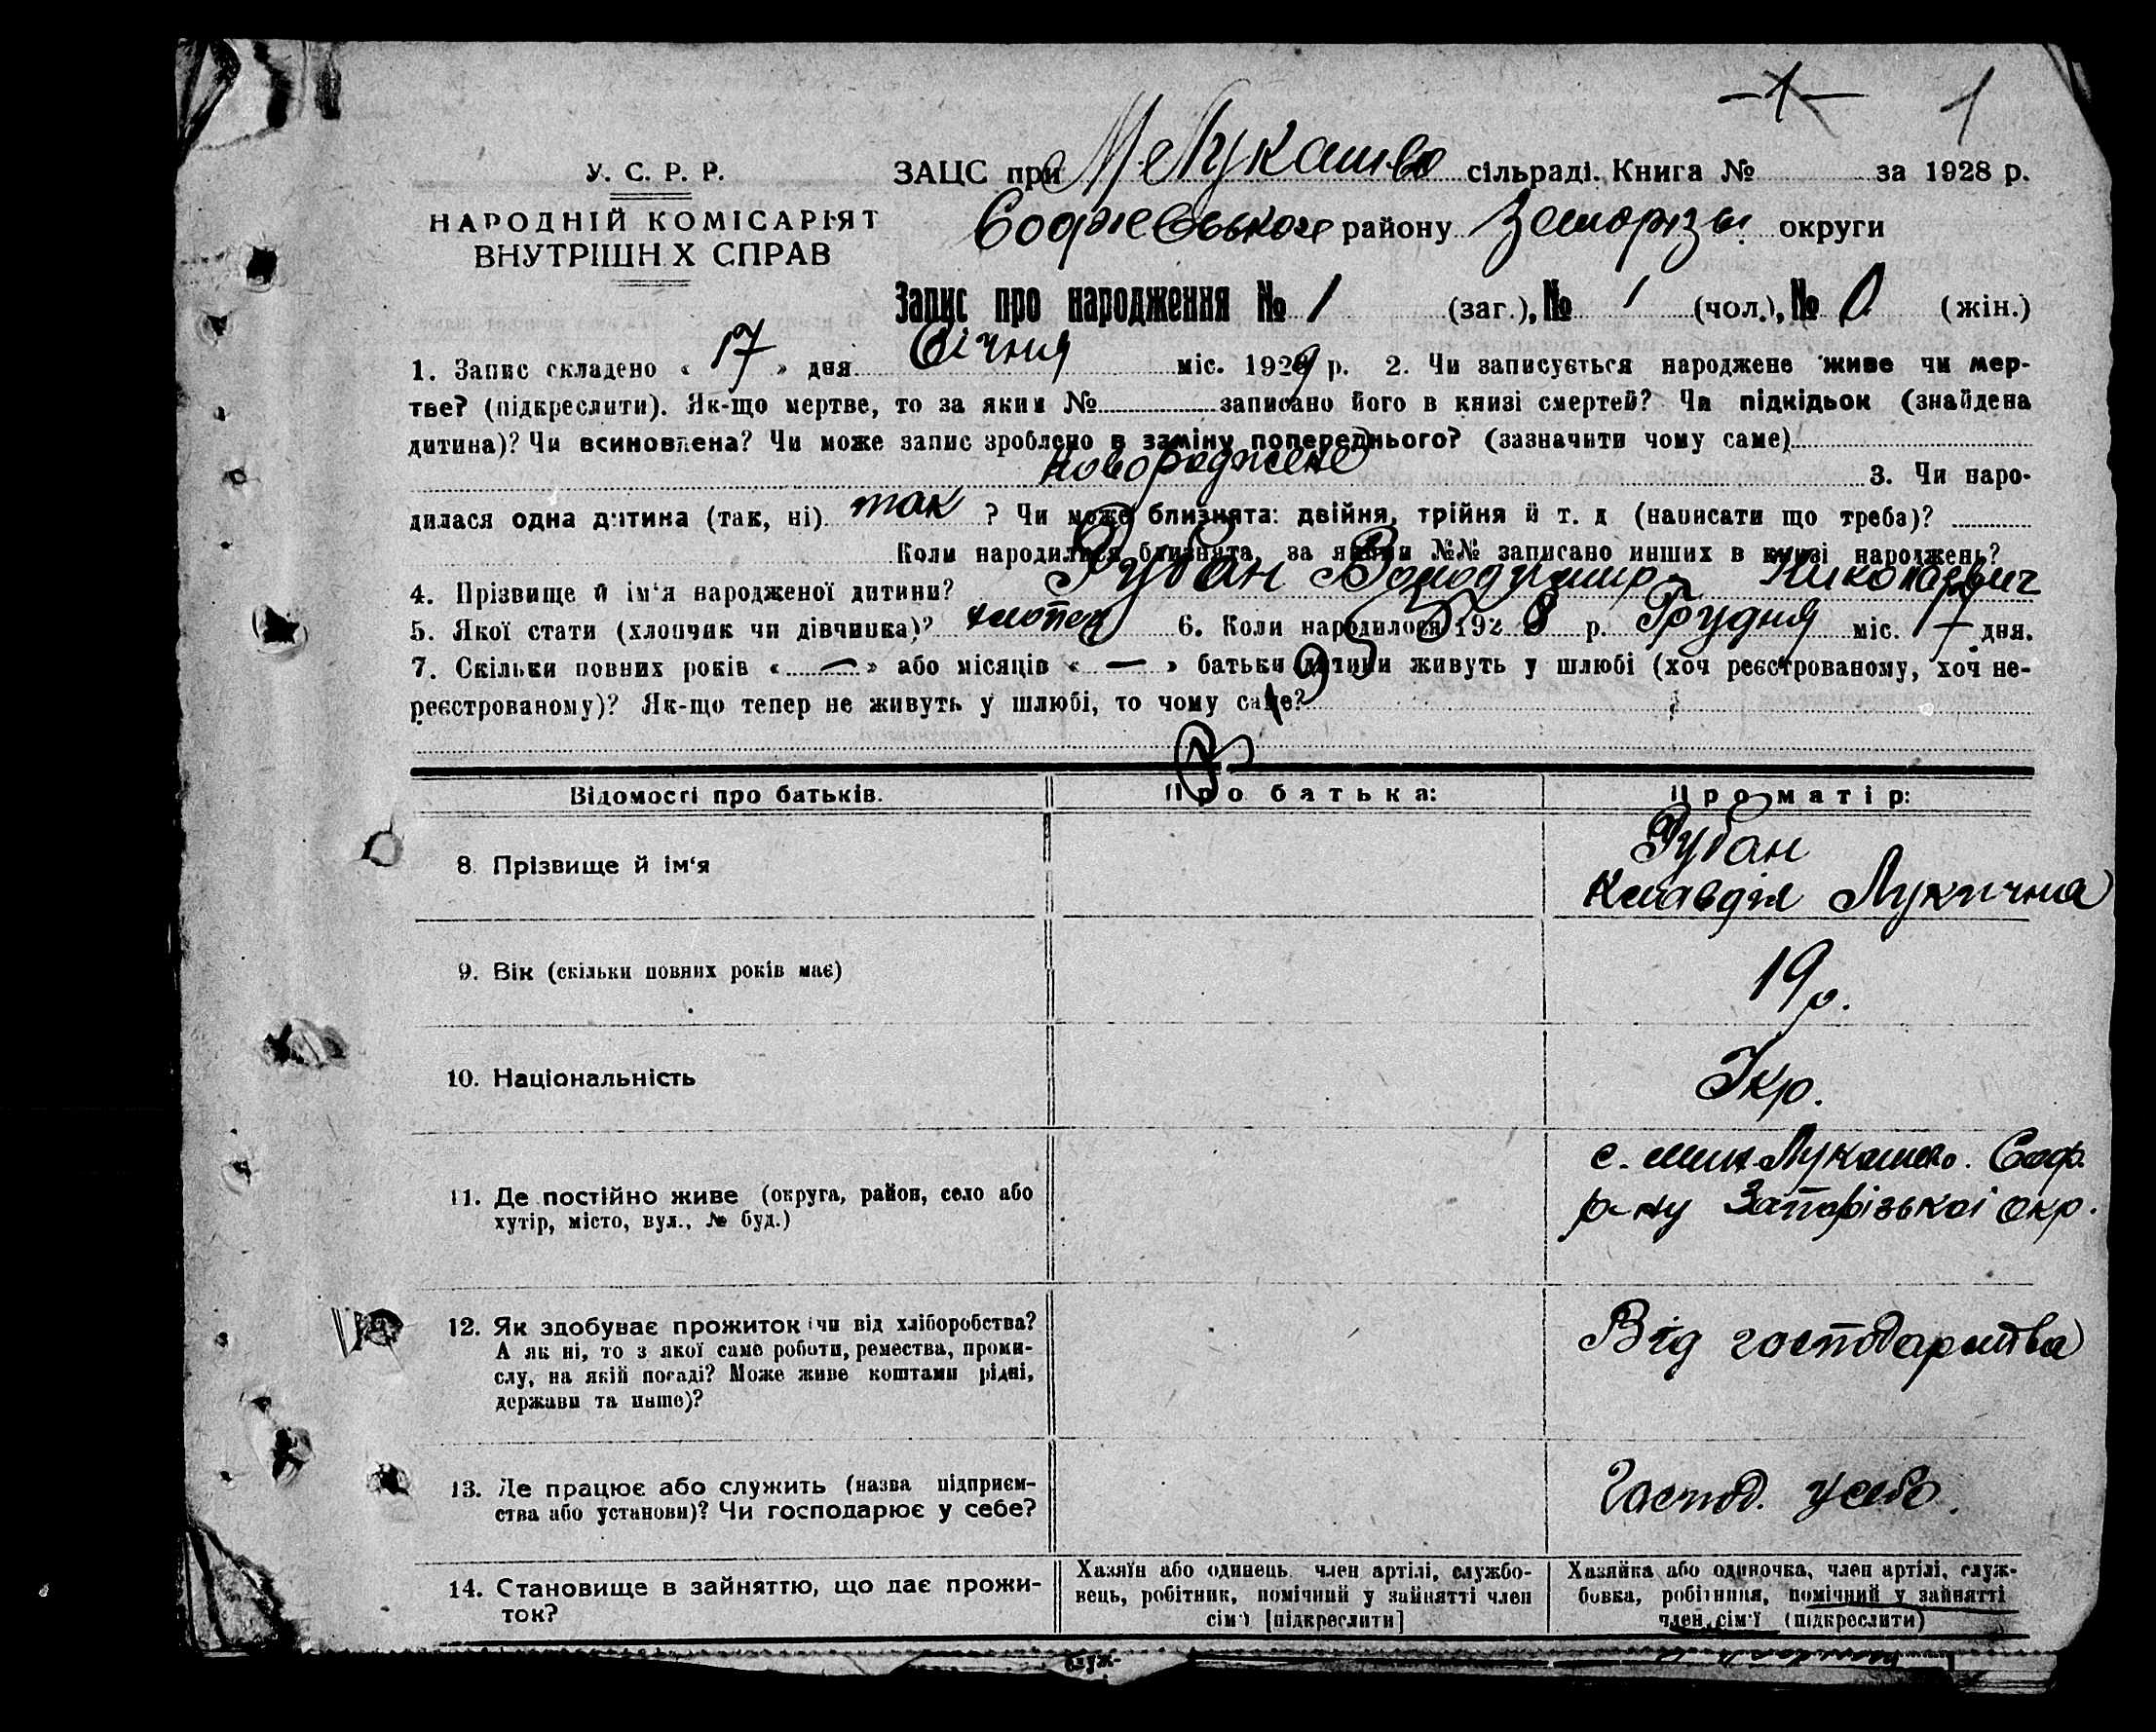 1 1
У. С. Р. Р.
НАРОДНІЙ КОМІСАРІЯТ
ВНУТРІШН Х СПРАВ
ЗАЦС при М Лукашево сільраді. Книга № за 1928 р.
Софиевського району Запоріз округи
Запис про народження № 1 (заг.), № 1 (чол.), № 0 (жін.)
1. Запис складено « 17 » дня Січня міс. 1929 р. 2. Чи записується народжене живе чи мер-
тве? (підкреслити). Як-що мертве, то за яким № записано його в книзі смертей? Чи підкідьок (знайдена
дитина)? Чи всиновлена? Чи може запис зроблено в заміну попереднього? (зазначити чому саме)
новороджене 3. Чи наро-
дилася одна дитина (так, ні) так ? Чи може близнята: двійня, трійня й т. д (написати що треба)?
Коли народилися близнята, за якими №№ записано инших в книзі народжень?
4. Прізвище й ім‘я народженої дитини? Рубан Володимир Николаевич
5. Якої стати (хлопчик чи дівчинка)? хлопец 6. Коли народилося 1928 р. Грудня міс. 17 дня.
7. Скільки повних років « — » або місяців « — » батьки дитини живуть у шлюбі (хоч реєстрованому, хоч не-
реєстрованому)? Як-що тепер не живуть у шлюбі, то чому саме?
Відомості про батьків. Про батька: Про матір:
8. Прізвище й ім‘я Рубан
Клавдія Лукична
9. Вік (скільки повних років має) 19 р.
10. Національність Укр.
11. Де постійно живе (округа, район, село або
хутір, місто, вул., № буд.)
с. Лукашево. Соф.
р-ну Запорізькоі окр.
12. Як здобуває прожиток (чи від хліборобства?
А як ні, то з якої саме роботи, ремества, проми-
слу, на якій посаді? Може живе коштами рідні,
держави та инше)?
Від господарства
13. Де працює або служить (назва підприєм-
ства або установи)? Чи господарює у себе?
Господ. у себе.
14. Становище в зайняттю, що дає прожи-
ток?
Хазяїн або одинець, член артілі, службо-
вець, робітник, помічний у зайнятті член
сім‘ї [підкреслити]
Хазяйка або одиночка, член артілі, служ-
бовка, робітниця, помічний у зайнятті
член сім‘ї (підкреслити)